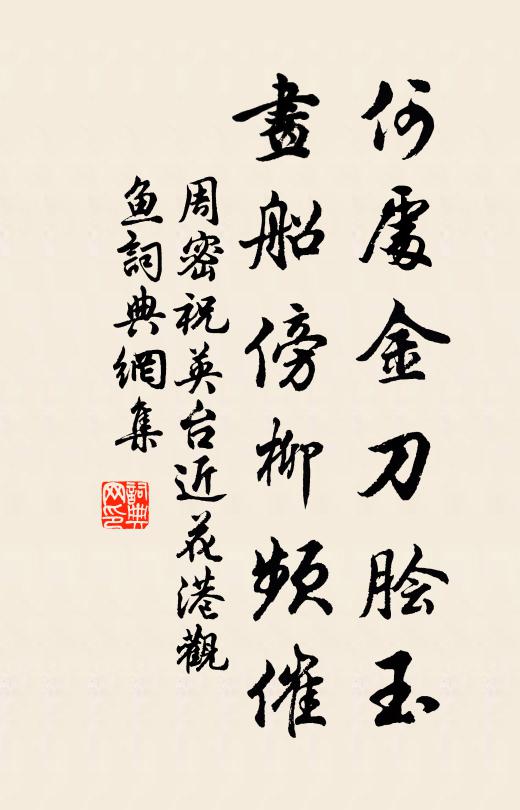 何處金刀膾玉
畫船傍柳頻催
周密祝英台近花港觀
魚詞典網集
詞典網印